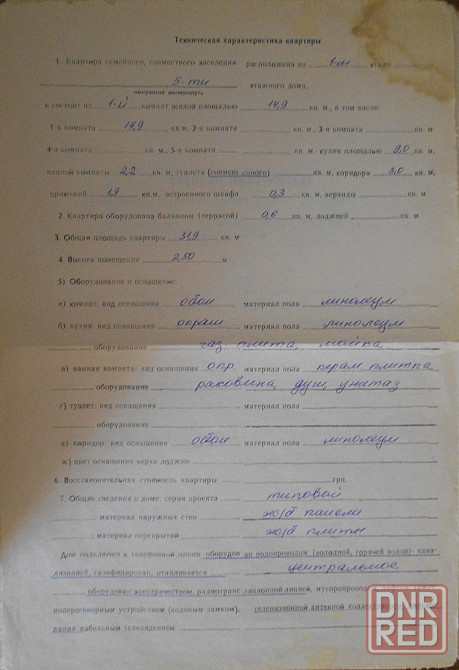 Техническая характеристика квартиры
1. Квартира семейного, совместного заселения расположена на 1-м этаже
5-ти этажного дома,
ненужное вычеркнуть
и состоит из 1-й комнат жилой площадью 14,9 кв. м, в том числе:
1-я комната 14,9 кв м, 2-я комната кв. м, 3-я комната кв. м
4-я комната кв. м., 5-я комната кв. м. кухни площадью 9,0 кв. м,
ванной комнаты 2,2 кв. м, туалета (совмещенного) кв. м, коридора 3,0 кв. м,
прихожей 1,9 кв.м, встроенного шкафа 0,3 кв. м, веранды кв. м
2. Квартира оборудована балконом (террасой) 0,6 кв. м, лоджией кв. м
3. Общая площадь квартиры 31,9 кв. м
4. Высота помещения 2,50 м
5) Оборудование и оснащение:
а) комнат: вид оснащения обои материал пола линолеум
б) кухня: вид оснащения окраш материал пола линолеум
оборудование газ. плита, мойка
в) ванная комната: вид оснащения опр. материал пола керам плитка
оборудование раковина, душ, унитаз
г) туалет: вид оснащения материал пола
оборудование
д) коридор: вид оснащения обои материал пола линолеум
ж) цвет оснащения верха лоджии
6. Восстановительная стоимость квартиры грн.
7. Общие сведения о доме: серия проекта типовой
материал наружных стен ж/б панели
материал перекрытий ж/б плиты
Дом подключен к телефонной линии, оборудов до водопроводом (холодной, горячей водой) кана-
лизацией, газифицирован, отапливается центральное
оборудован электричеством, радиотранс ляционной линией, мусоропроводом,
попереговорным устройством (кодовым замком), телевизионной антенной
вания кабельным телевидением
DNR
RED